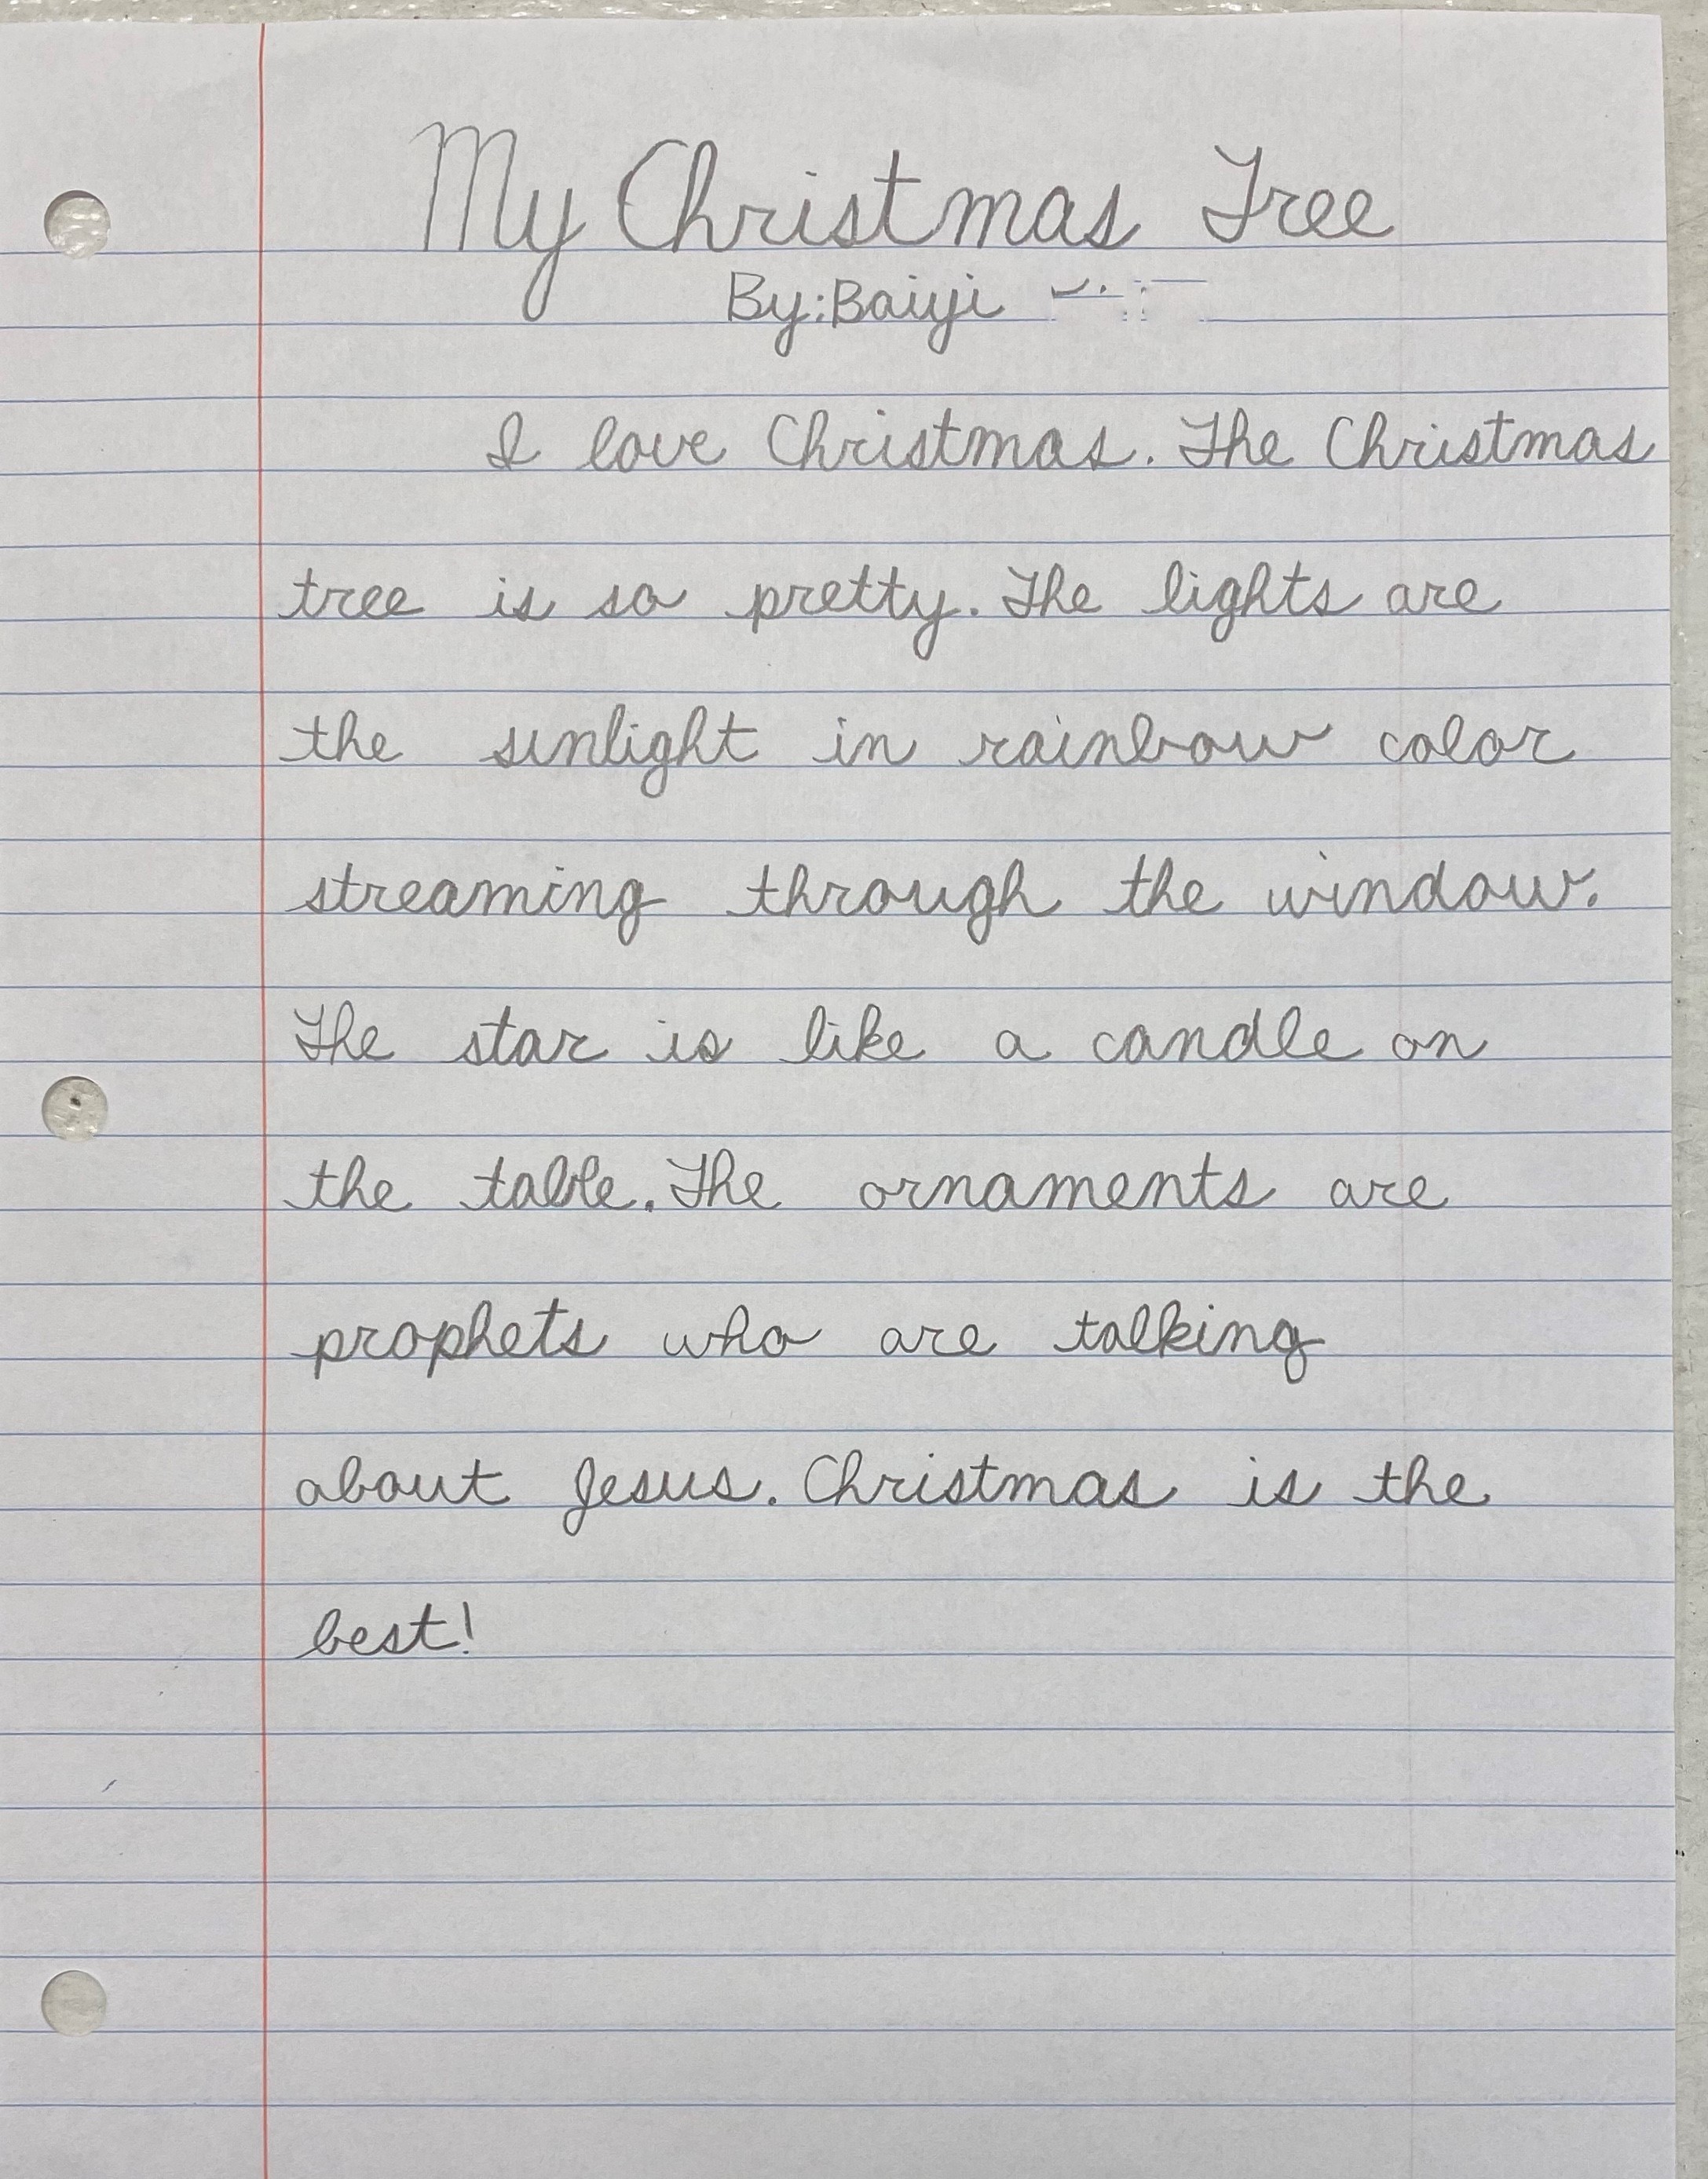 My Christmas Tree
By: Baiyi
I love Christmas. The Christmas
tree is so pretty. The lights are
the sunlight in rainbow color
streaming through the window.
The star is like a candle on
the table. The ornaments are
prophets who are talking
about Jesus. Christmas is the
best!